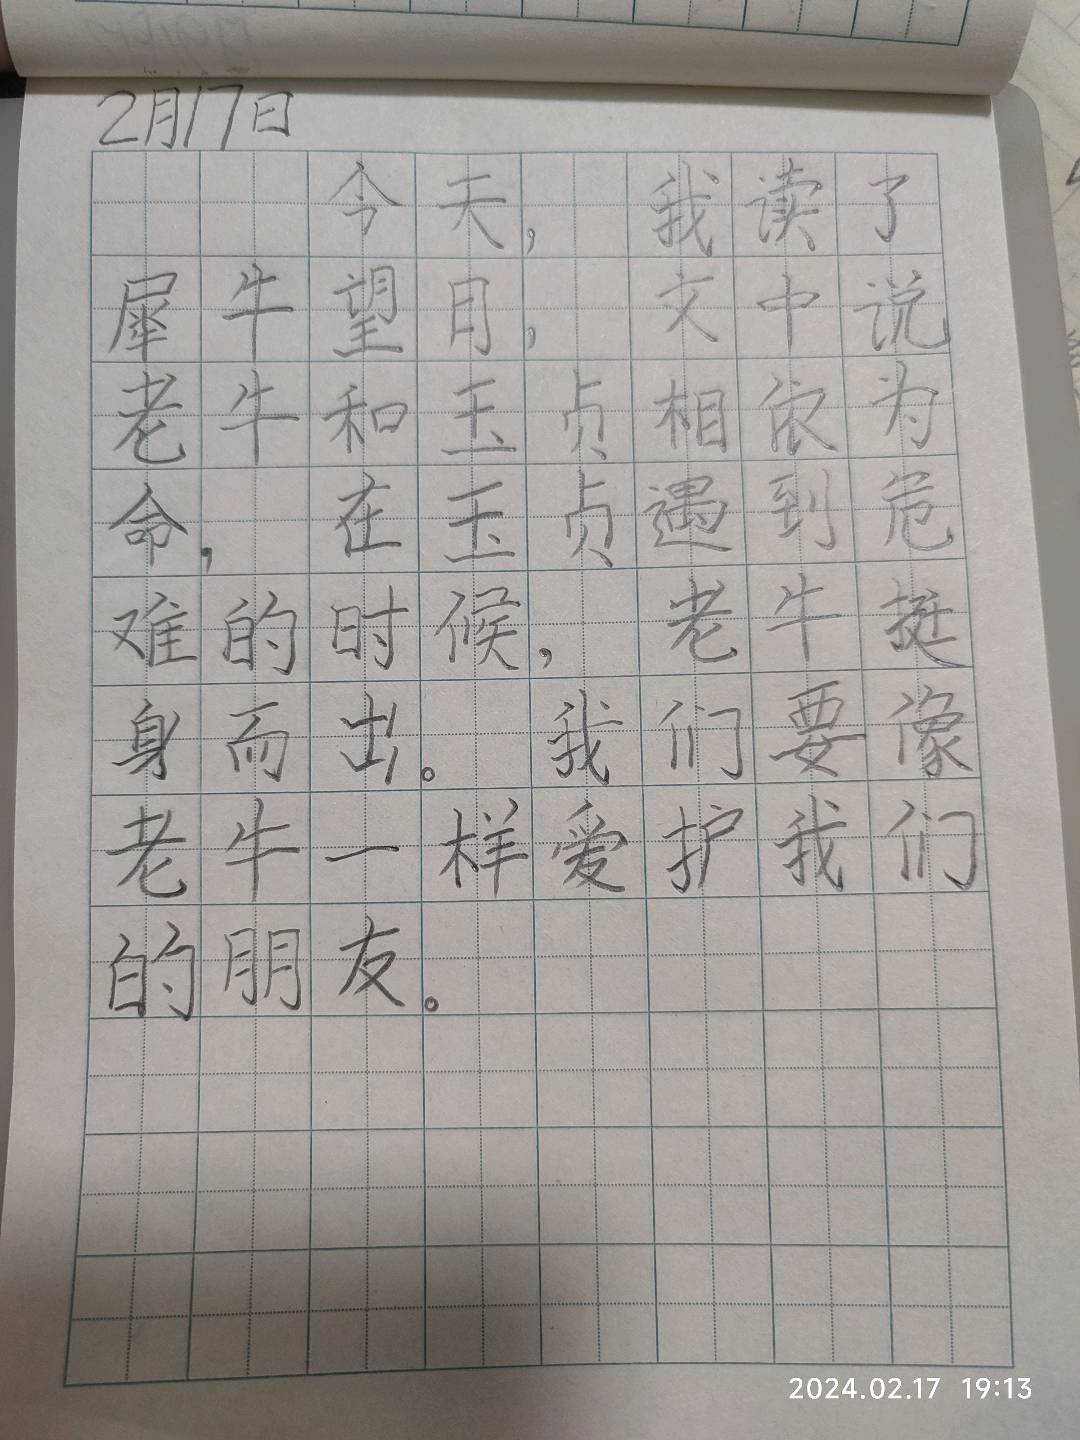 2月17日
今天，我读了
犀牛望月，文中说
老牛和玉贞相依为
命，在玉贞遇到危
难的时候，老牛挺
身而出。我们要像
老牛一样爱护我们
的朋友。
2024.02.17 19:13